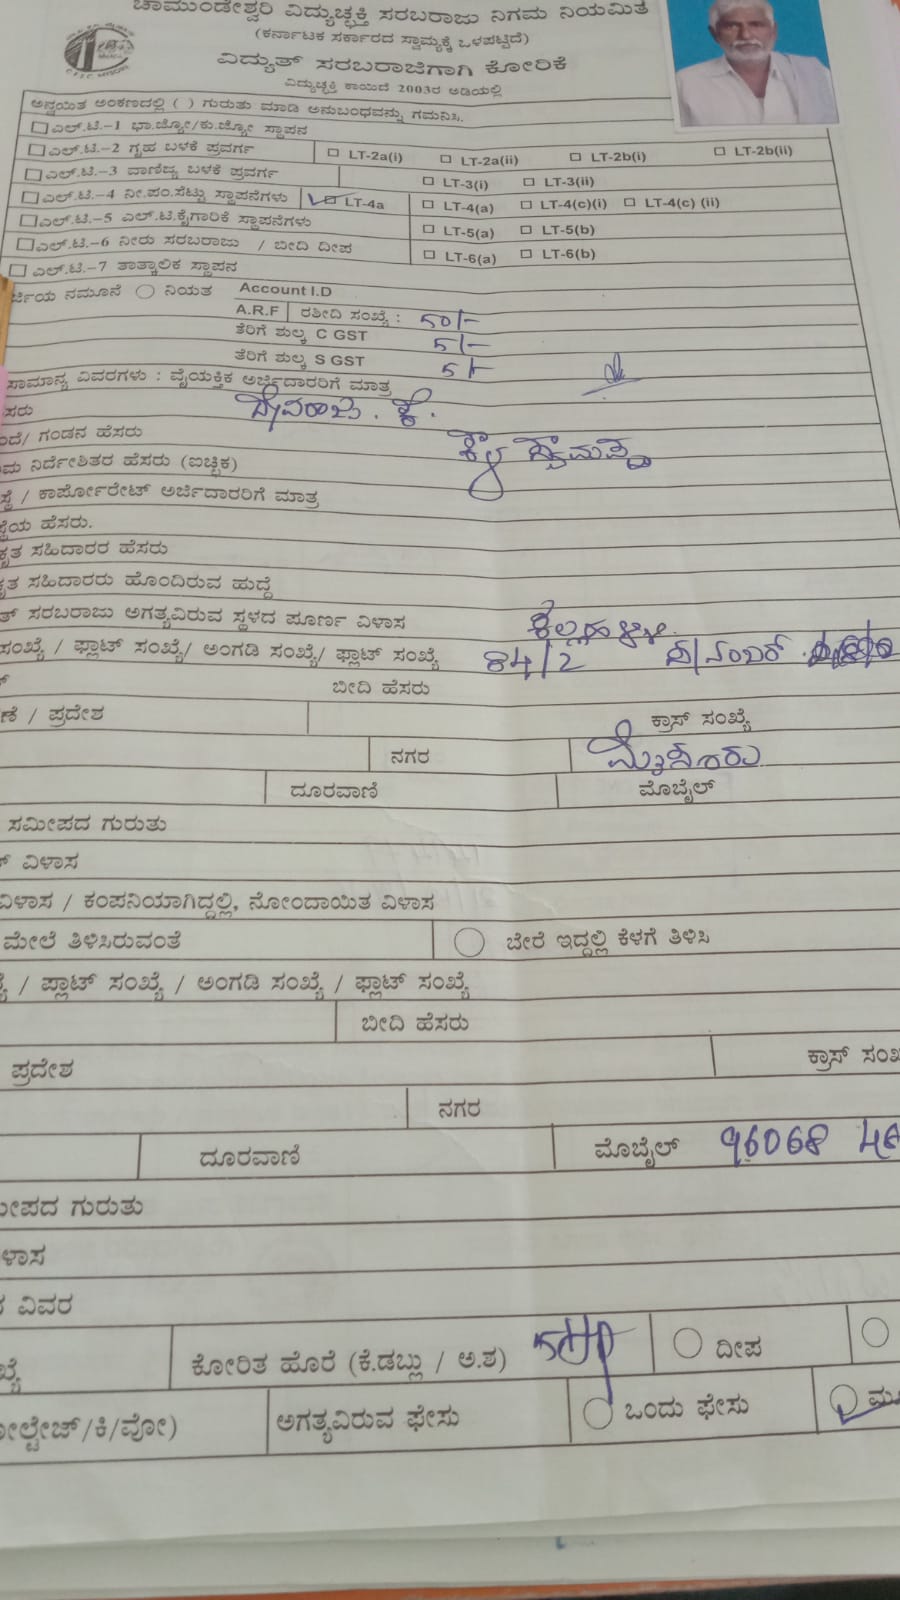 ಚಾಮುಂಡೇಶ್ವರಿ ವಿದ್ಯುಚ್ಛಕ್ತಿ ಸರಬರಾಜು ನಿಗಮ ನಿಯಮಿತ
(ಕರ್ನಾಟಕ ಸರ್ಕಾರದ ಸ್ವಾಮ್ಯಕ್ಕೆ ಒಳಪಟ್ಟಿದೆ)
ವಿದ್ಯುತ್ ಸರಬರಾಜಿಗಾಗಿ ಕೋರಿಕೆ
ವಿದ್ಯುಚ್ಛಕ್ತಿ ಕಾಯಿದೆ 2003ರ ಅಡಿಯಲ್ಲಿ
ಅನ್ವಯಿತ ಅಂಕಣದಲ್ಲಿ ( ) ಗುರುತು ಮಾಡಿ ಅನುಬಂಧವನ್ನು ಗಮನಿಸಿ.
ಎಲ್.ಟಿ.-1 ಭಾ.ಜ್ಯೋ/ಕು.ಜ್ಯೋ ಸ್ಥಾಪನ
ಎಲ್.ಟಿ.-2 ಗೃಹ ಬಳಕೆ ಪ್ರವರ್ಗ LT-2a(i) LT-2a(ii) LT-2b(i) LT-2b(ii)
ಎಲ್.ಟಿ.-3 ವಾಣಿಜ್ಯ ಬಳಕೆ ಪ್ರವರ್ಗ LT-3(i) LT-3(ii)
ಎಲ್.ಟಿ.-4 ನೀ.ಪಂ.ಸೆಟ್ಟು ಸ್ಥಾಪನೆಗಳು LT-4a LT-4(a) LT-4(c)(i) LT-4(c) (ii)
ಎಲ್.ಟಿ.-5 ಎಲ್.ಟಿ.ಕೈಗಾರಿಕೆ ಸ್ಥಾಪನೆಗಳು LT-5(a) LT-5(b)
ಎಲ್.ಟಿ.-6 ನೀರು ಸರಬರಾಜು / ಬೀದಿ ದೀಪ LT-6(a) LT-6(b)
ಎಲ್.ಟಿ.-7 ತಾತ್ಕಾಲಿಕ ಸ್ಥಾಪನ
ರ್ಜಿಯ ನಮೂನೆ ನಿಯತ Account I.D
A.R.F ರಶೀದಿ ಸಂಖ್ಯೆ : 50/-
ತೆರಿಗೆ ಶುಲ್ಕ C GST 5/-
ತೆರಿಗೆ ಶುಲ್ಕ S GST 5/-
ಸಾಮಾನ್ಯ ವಿವರಗಳು : ವೈಯಕ್ತಿಕ ಅರ್ಜಿದಾರರಿಗೆ ಮಾತ್ರ
ಸರು ದೇವರಾಜು . ಕೆ.
ದೆ/ ಗಂಡನ ಹೆಸರು
ಮ ನಿರ್ದೇಶಿತರ ಹೆಸರು (ಐಚ್ಛಿಕ)
ಸ್ಥೆ / ಕಾರ್ಪೋರೇಟ್ ಅರ್ಜಿದಾರರಿಗೆ ಮಾತ್ರ
ಸ್ಥೆಯ ಹೆಸರು.
ಕೃತ ಸಹಿದಾರರ ಹೆಸರು
ಕೃತ ಸಹಿದಾರರು ಹೊಂದಿರುವ ಹುದ್ದೆ
ತ್ ಸರಬರಾಜು ಅಗತ್ಯವಿರುವ ಸ್ಥಳದ ಪೂರ್ಣ ವಿಳಾಸ ಕೆಲ್ಲಹಳ್ಳಿ.
ಸಂಖ್ಯೆ / ಫ್ಲಾಟ್ ಸಂಖ್ಯೆ/ ಅಂಗಡಿ ಸಂಖ್ಯೆ/ ಫ್ಲಾಟ್ ಸಂಖ್ಯೆ 84/2
ಬೀದಿ ಹೆಸರು
ಣೆ / ಪ್ರದೇಶ ಕ್ರಾಸ್ ಸಂಖ್ಯೆ
ನಗರ ಮೈಸೂರು
ದೂರವಾಣಿ ಮೊಬೈಲ್
ಸಮೀಪದ ಗುರುತು
ವಿಳಾಸ
ವಿಳಾಸ / ಕಂಪನಿಯಾಗಿದ್ದಲ್ಲಿ, ನೋಂದಾಯಿತ ವಿಳಾಸ
ಮೇಲೆ ತಿಳಿಸಿರುವಂತೆ ಬೇರೆ ಇದ್ದಲ್ಲಿ ಕೆಳಗೆ ತಿಳಿಸಿ
/ ಪ್ಲಾಟ್ ಸಂಖ್ಯೆ / ಅಂಗಡಿ ಸಂಖ್ಯೆ / ಫ್ಲಾಟ್ ಸಂಖ್ಯೆ
ಬೀದಿ ಹೆಸರು
ಪ್ರದೇಶ ಕ್ರಾಸ್ ಸಂಖ
ನಗರ
ದೂರವಾಣಿ ಮೊಬೈಲ್ 96068
ೀಪದ ಗುರುತು
ಳಾಸ
ವಿವರ
ಖ್ಯೆ ಕೋರಿತ ಹೊರೆ (ಕೆ.ಡಬ್ಲು / ಅ.ಶ) 5HP ದೀಪ
ೋಲ್ಟೇಜ್/ಕಿ/ವೋ) ಅಗತ್ಯವಿರುವ ಫೇಸು ಒಂದು ಫೇಸು ಮೂ